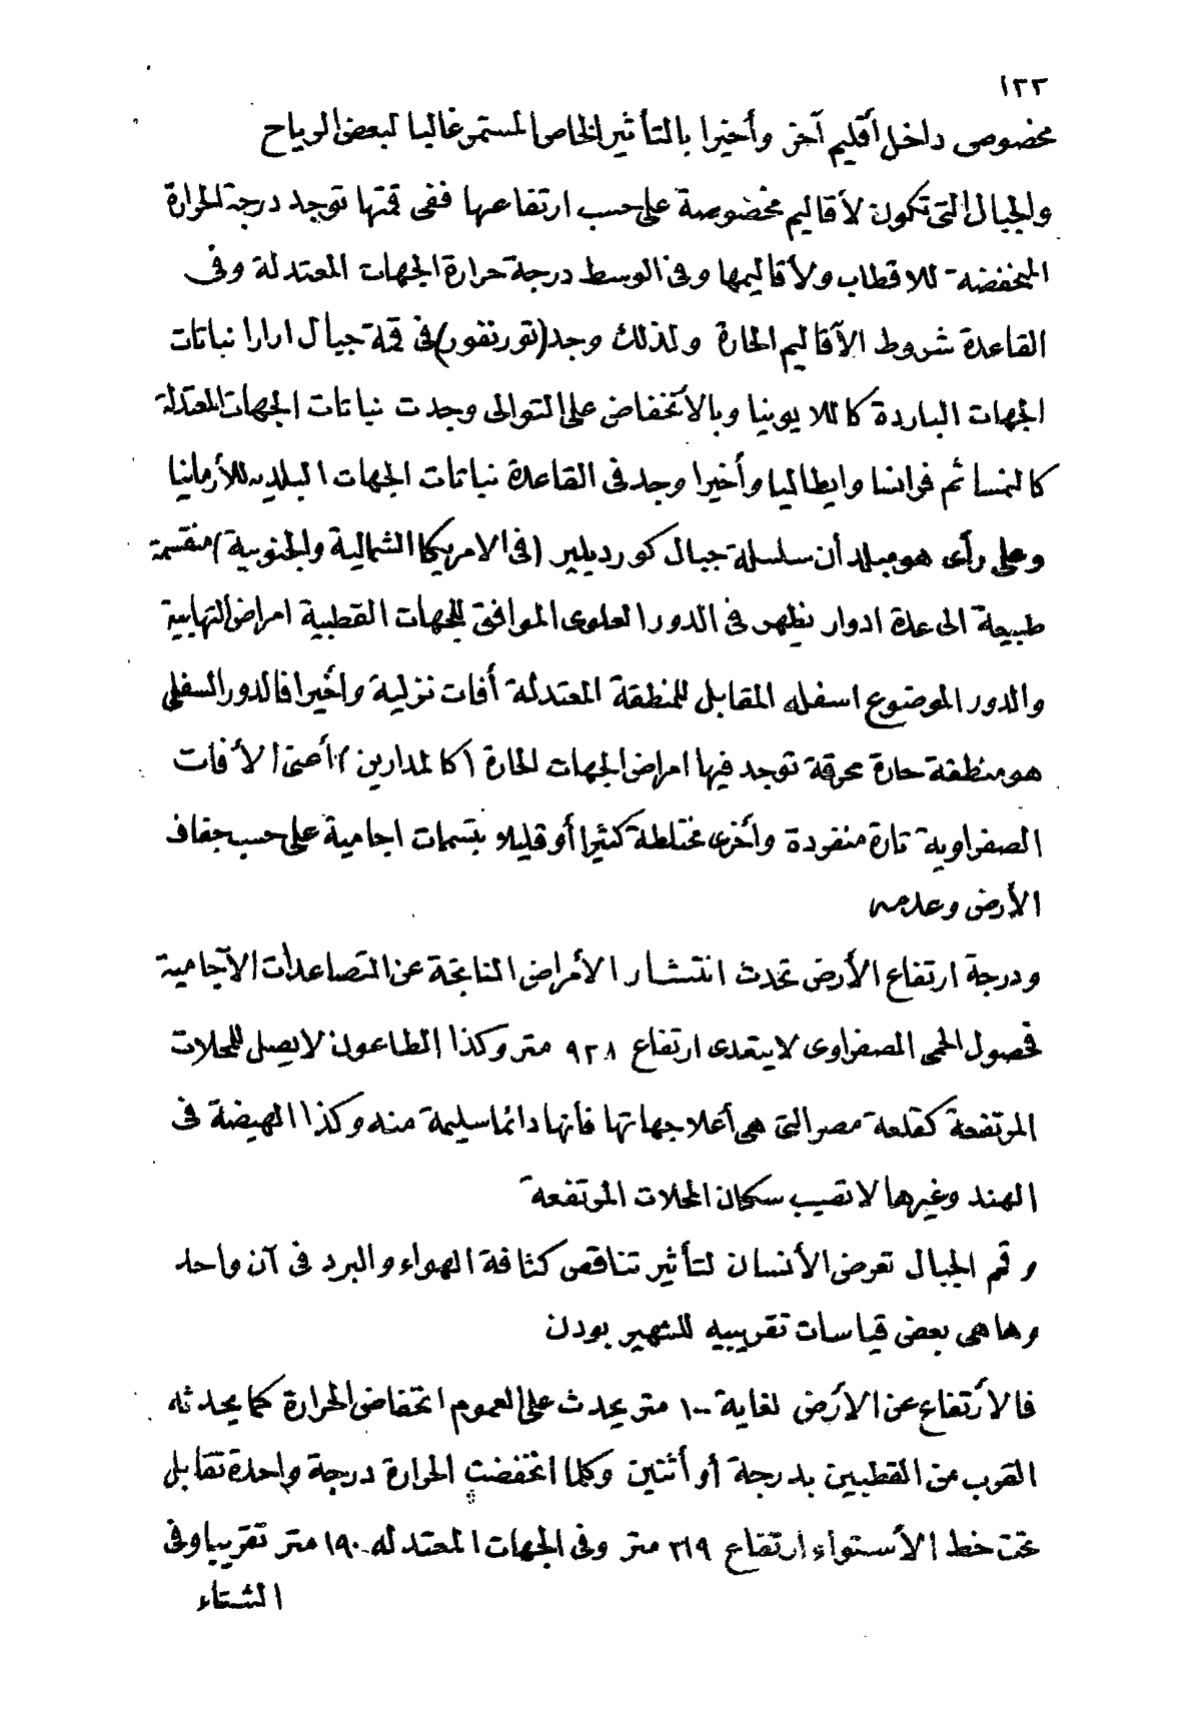 ١٢٢
مخصوص داخل أقليم آخر وأخيرا بالتأثير الخاص المستمر غالبا لبعض الرياح
والجبال التى تكون لأقاليم مخصوصة على حسب ارتفاعها ففى قمتها توجد درجة الحرارة
المنخفضة للاقطاب ولأقاليمها وفى الوسط درجة حرارة الجهات المعتدلة وفى
القاعدة شروط الآقاليم الحارة ولذلك وجد (تورنفور) فى قمة جبال ارارا نباتات
الجهات الباردة كاللايوبنيا وبالأنخفاض على التوالى وجدت نباتات الجهات المعتدلة
كالنمسا ثم فرانسا وايطاليا وأخيرا وجد فى القاعدة نباتات الجهات البلديه للأرمانيا
وعلى رأى هومبلد أن سلسلة جبال كورديلير (فى الامريكا الشمالية والجنوبية) منقسمة
طبيعة الى عدة ادوار يظهر فى الدور العلوى الموافق للجهات القطبية امراض التهابية
والدور الموضوع اسفله المقابل للمنطقة المعتدلة أفات نزلية واخيرا فالدور السفلى
هو منطقة حارة محرقة توجد فيها امراض الجهات الحارة (كالمدارين) أعنى الأفات
الصفراوية تارة منفردة وأخرى مختلطة كثيرا أو قليلا بتسمات اجامية على حسب جفاف
الأرض وعدمه
ودرجة ارتفاع الأرض تحدث انتشار الأمراض الناتجة عن التصاعدات الآجامية
فحصول الحمى الصفراوى لايتعدى ارتفاع ٩٢٨ متر وكذا الطاعون لايصل للمحلات
المرتفعة كقلعة مصر التى هى أعلا جهاتها فأنها دائما سليمة منه وكذا الهيضة فى
الهند وغيرها لا تصيب سكان المحلات المرتفعة
وقم الجبال تعرض الأنسان لتأثير تناقص كثافة الهواء والبرد فى آن واحد
وهاهى بعض قياسات تقريبيه للشهير بودن
فالأرتفاع عن الأرض لغاية ١٠٠ متر يحدث على العموم انخفاض الحرارة كما يحدثه
القرب من القطبين بدرجة أو أثنين وكلما انخفضت الحرارة درجة واحدة تقابل
تحت خط الأستواء ارتفاع ٢١٩ متر وفى الجهات المعتدله ١٩٠ متر تقريبا وفى
الشتاء